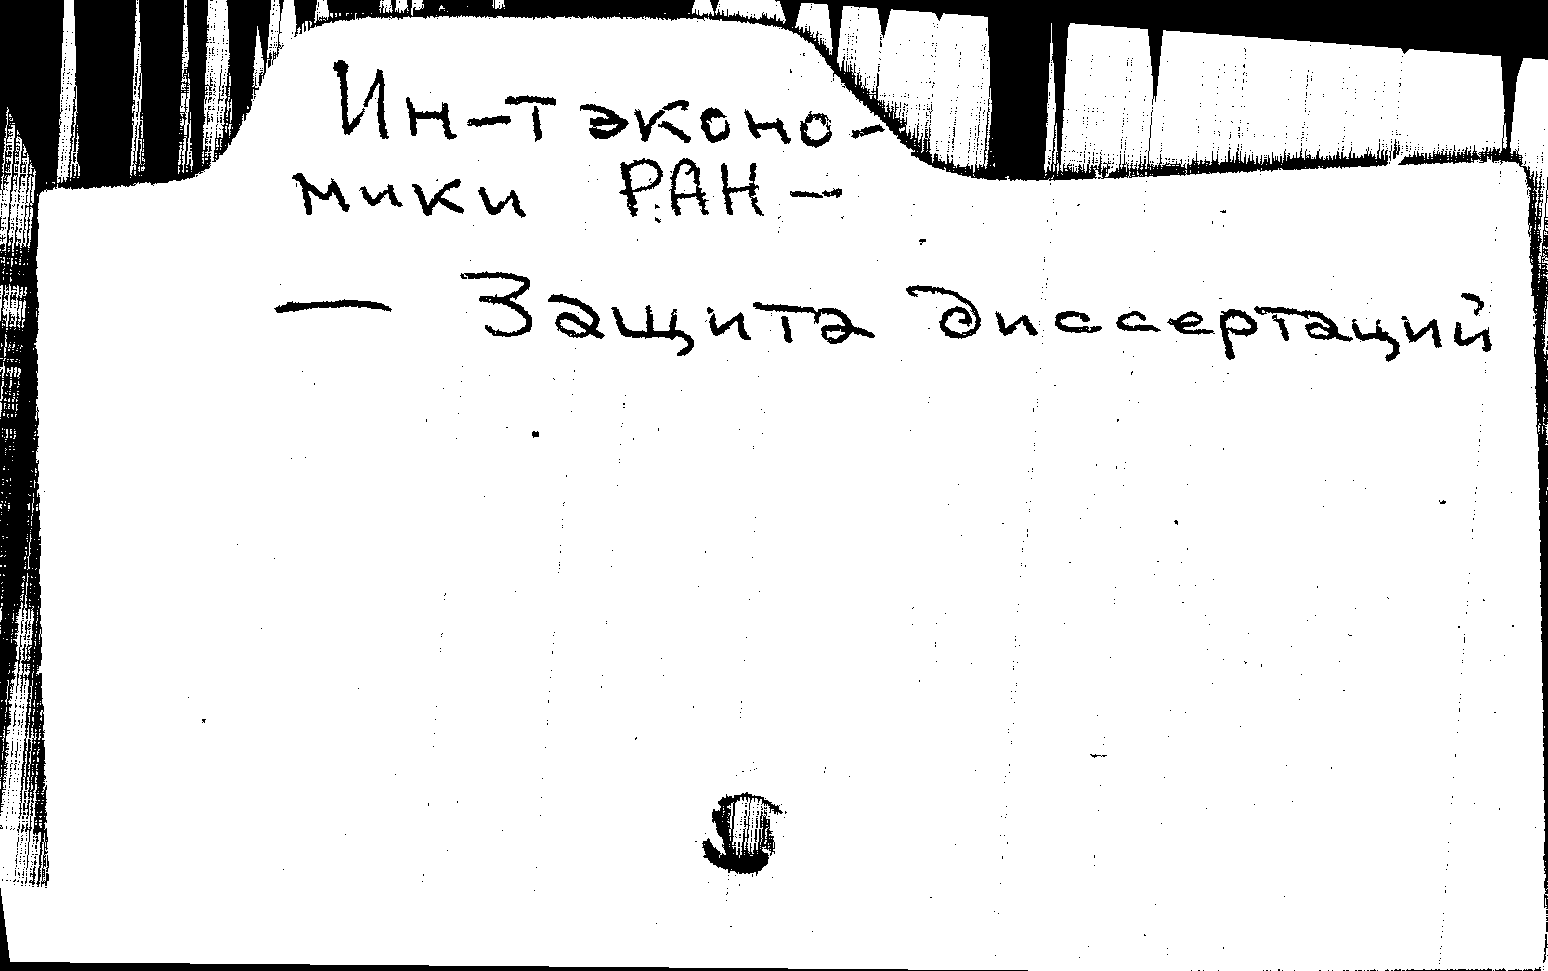 Ин-т эконо-
мики РАН -
— Защита диссертаций